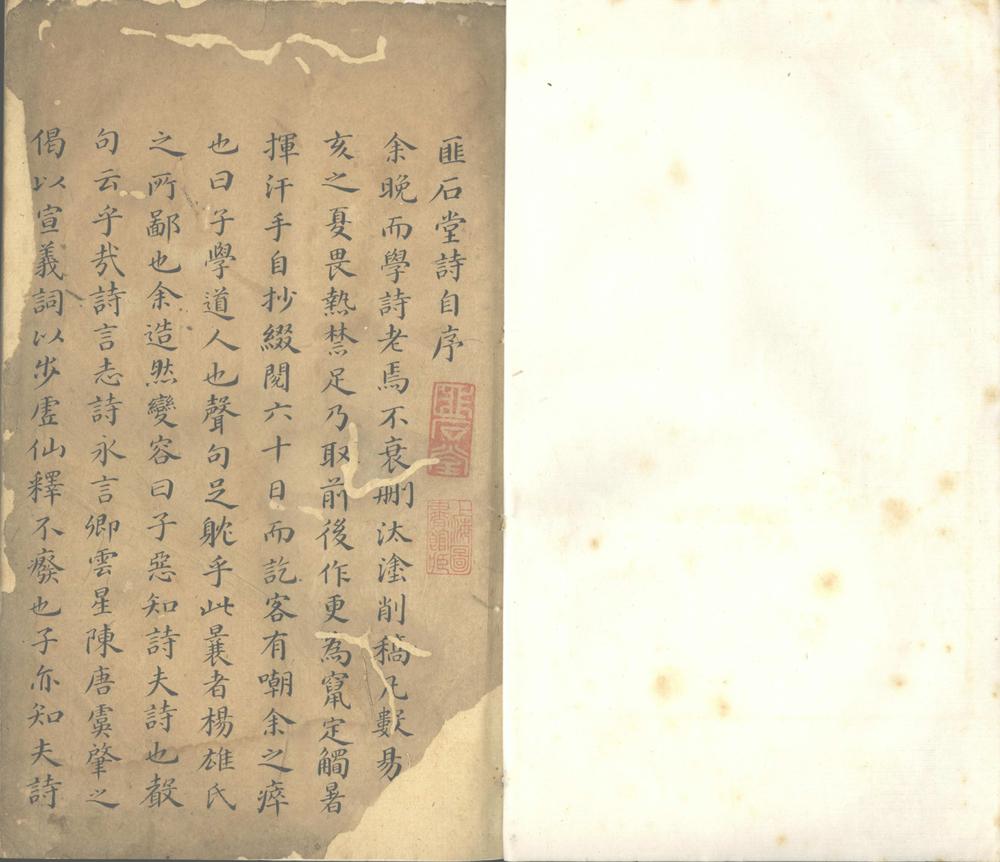 匪石堂詩自序
余晚而學詩老焉不衰刪汰塗削稿凡數易
亥之夏畏熱禁足乃取前後作更為竄定觸暑
揮汗手自抄綴閱六十日而訖客有嘲余之瘁
也曰子學道人也聲句足躭乎此曩者楊雄氏
之所鄙也余造然變容曰子惡知詩夫詩也聲
句云乎㢤詩言志詩永言卿雲星陳唐虞肇之
偈以宣義詞以步虛仙釋不癈也子亦知夫詩
上海圖
書館臧